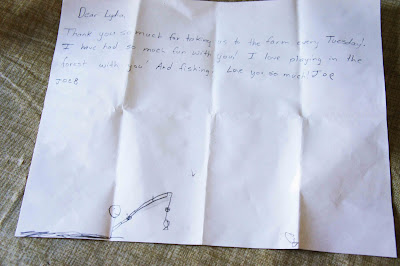 Dear Lydia.
Thank you so much for taking us to the farm every Tuesday!
I have had so much fun with you! I love playing in the
forest with you! And fishing. Love you so much! Joe